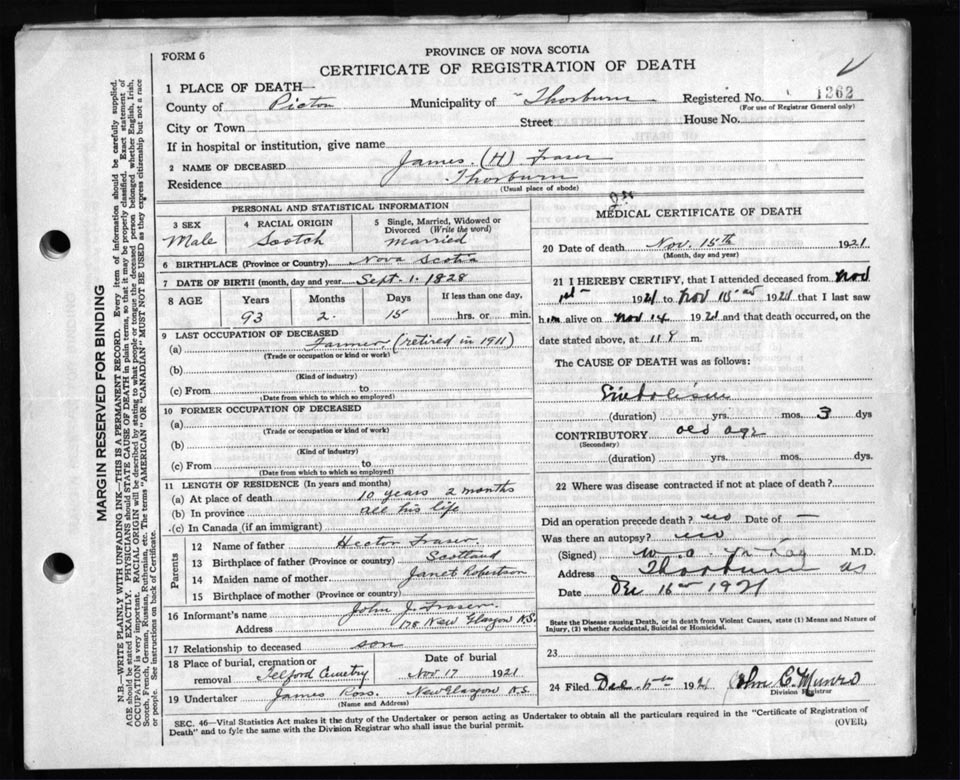 FORM 6
PROVINCE OF NOVA SCOTIA
CERTIFICATE OF REGISTRATION OF DEATH
1 PLACE OF DEATH—
County of Pictou Municipality of Thorburn Registered No. 1362
(For use of Registrar General only)
City or Town Street House No.
If in hospital or institution, give name
2 NAME OF DECEASED James (H) Fraser
Residence Thorburn
(Usual place of abode)
PERSONAL AND STATISTICAL INFORMATION
3 SEX 4 RACIAL ORIGIN 5 Single, Married, Widowed or Divorced (Write the word)
Male Scotch married
6 BIRTHPLACE (Province or Country) Nova Scotia
7 DATE OF BIRTH (month, day and year) Sept. 1. 1828
8 AGE Years Months Days If less than one day,
93 2. 15 hrs. or min.
9 LAST OCCUPATION OF DECEASED
(a) Farmer (retired in 1911)
(Trade or occupation or kind or work)
(b)
(Kind of industry)
(c) From to
(Date from which to which so employed)
10 FORMER OCCUPATION OF DECEASED
(a)
(Trade or occupation or kind of work)
(b)
(Kind of industry)
(c) From to
(Date from which to which so employed)
11 LENGTH OF RESIDENCE (In years and months)
(a) At place of death 10 years 2 months
(b) In province all his life
(c) In Canada (if an immigrant)
Parents
12 Name of father Hector Fraser
13 Birthplace of father (Province or country) Scotland
14 Maiden name of mother Janet Robertson
15 Birthplace of mother (Province or country)
16 Informant's name John J. Fraser
Address 178 New Glasgow N.S.
17 Relationship to deceased son
18 Place of burial, cremation or removal Telford Cemetry Date of burial Nov 17 1921
19 Undertaker James Ross. New Glasgow N.S.
(Name and Address)
MEDICAL CERTIFICATE OF DEATH
20 Date of death Nov. 15th 1921
(Month, day and year)
21 I HEREBY CERTIFY, that I attended deceased from Nov
1921 to Nov 1921 that I last saw
him alive on Nov 14 1921 and that death occurred, on
date stated above, at 11 m.
The CAUSE OF DEATH was as follows:
Embolism
(duration) yrs. mos. 3 dys
CONTRIBUTORY old age
(Secondary)
(duration) yrs. mos. dys.
22 Where was disease contracted if not at place of death?
Did an operation precede death? no Date of —
Was there an autopsy? no
(Signed) W. A. M.D.
Address Thorburn
Date 16 1921
State the Disease causing Death, or in death from Violent Causes, state (1) Means and Nature of
Injury, (2) whether Accidental, Suicidal or Homicidal.
23
24 Filed Dec 1921 John C. Munro
Division Registrar
SEC. 46—Vital Statistics Act makes it the duty of the Undertaker or person acting as Undertaker to obtain all the particulars required in the "Certificate of Registration of
Death" and to fyle the same with the Division Registrar who shall issue the burial permit. (OVER)
MARGIN RESERVED FOR BINDING
N.B.—WRITE PLAINLY WITH UNFADING INK—THIS IS A PERMANENT RECORD. Every item of information should be carefully supplied.
AGE should be stated EXACTLY. PHYSICIANS should STATE CAUSE OF DEATH in plain terms, so that it may be properly classified. Exact statement of
OCCUPATION is very important. RACIAL ORIGIN will be described by stating to what people or tongue the deceased person belonged whether English, Irish,
Scotch, French, German, Russian, Ruthenian, etc. The terms "AMERICAN" OR "CANADIAN" MUST NOT BE USED as they express citizenship but not a race
or people. See instructions on back of Certificate.